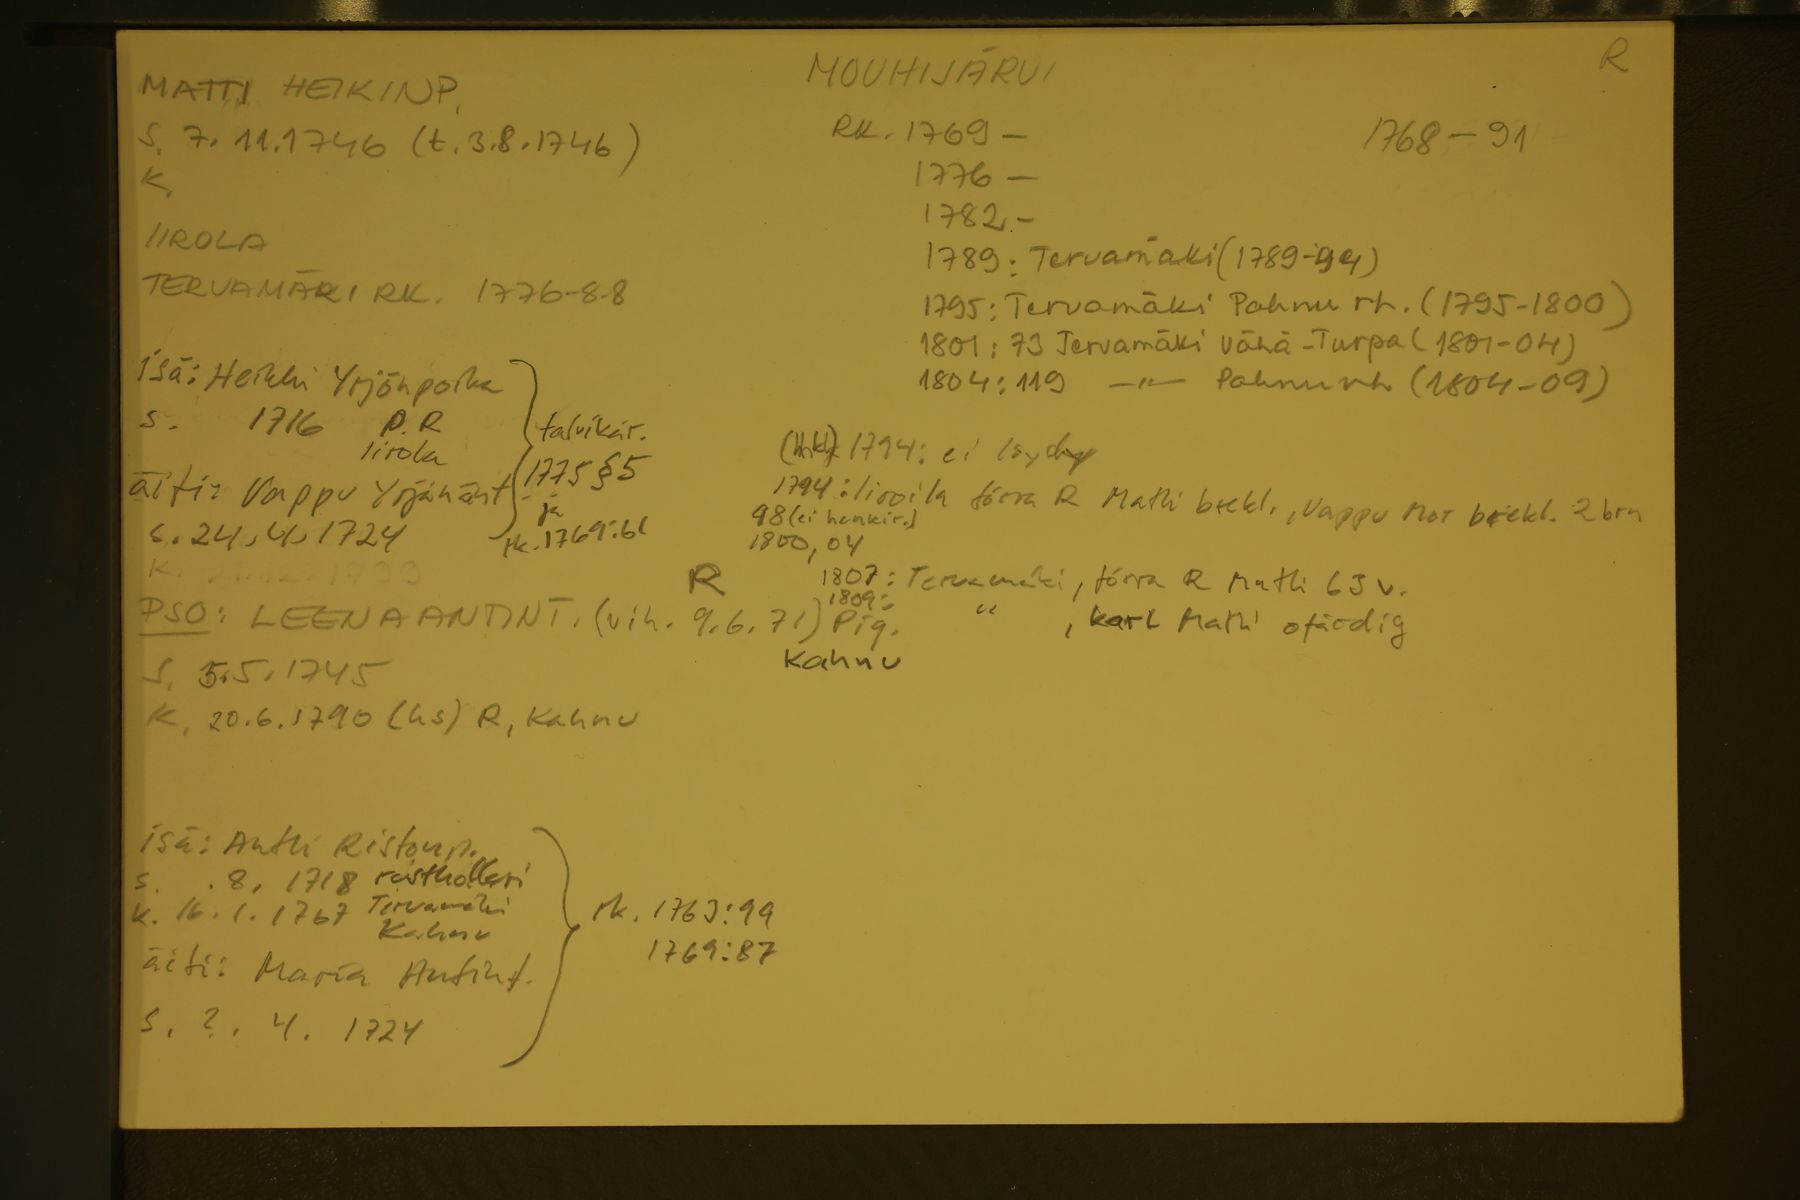 MATTI HEIKINP.
S. 7.11.1746 (t. 3.8.1746)
K.
IIROLA
TERVAMÄKI RK. 1776-88
isä: Heikki Yrjönpoika
s. 1716 P. R
Iirola
äiti: Vappu Yrjänänt
s. 24.4.1724
talvikär.
1775 § 5
ja
rk. 1769:61
K. 1799
PSO: LEENA ANTINT. (vih. 9.6.71) R Pig.
Kahnu
S. 5.5.1745
K. 20.6.1790 (hs) R, Kahnu
isä: Antti Ristonp.
s. .8. 1718 rusthollari
k. 16.1.1767 Tervamäki
Kahnu
äiti: Maria Antint.
s. ?. 4. 1724
rk. 1763:99
1769:87
MOUHIJÄRVI
R
RK. 1769 –
1768 – 91
1776 –
1782 –
1789: Tervamäki (1789-94)
1795: Tervamäki Pahnu rh. (1795-1800)
1801: 73 Tervamäki Vähä-Turpa (1801-04)
1804: 119 –"– Pahnu rh (1804-09)
(hki) 1794: ei löydy
1794: Iiroila förra R Matti bräkl., Vappu Mor bräkl. 2 brn
98 (ei henkir.)
1800, 04
1807: Tervamäki, förra R Matti 63 v.
1809: " , karl Matti ofärdig